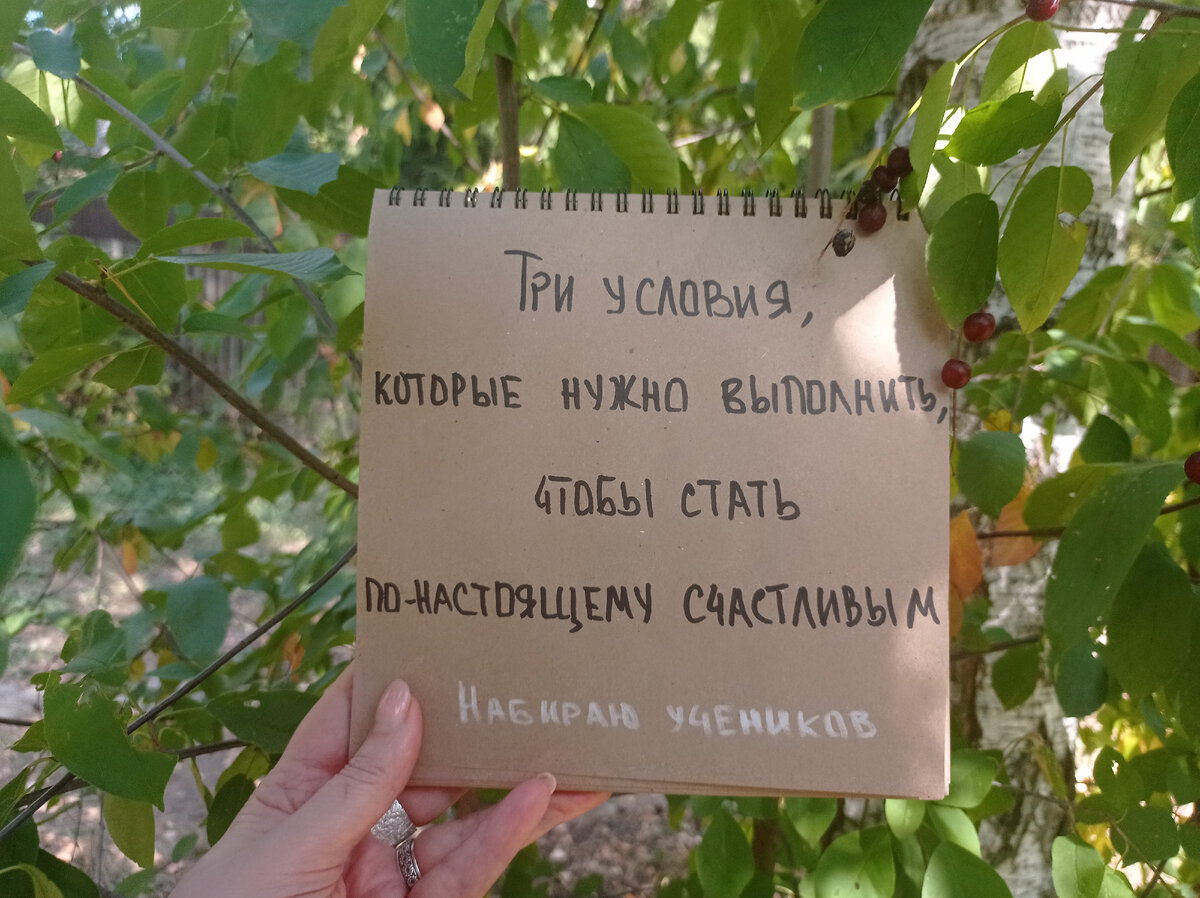 Три условия,
которые нужно выполнить,
чтобы стать
по-настоящему счастливым
Набираю учеников